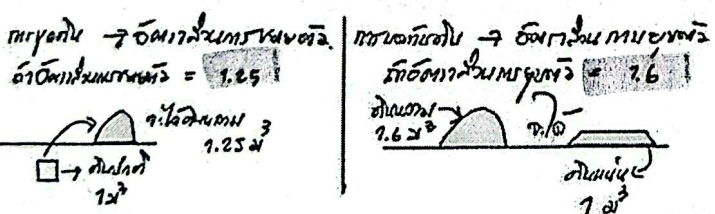 การขุดดิน → อัตราส่วนการขยายตัว
ถ้าอัตราส่วนการขยายตัว = 1.25
จะได้ดินหลวม
1.25 ม³
→ ดินปกติ
1 ม³
การบดทับดิน → อัตราส่วนการยุบตัว
ถ้าอัตราส่วนการยุบตัว = 1.6
ดินหลวม
1.6 ม³
จะได้
ดินแน่น
1 ม³